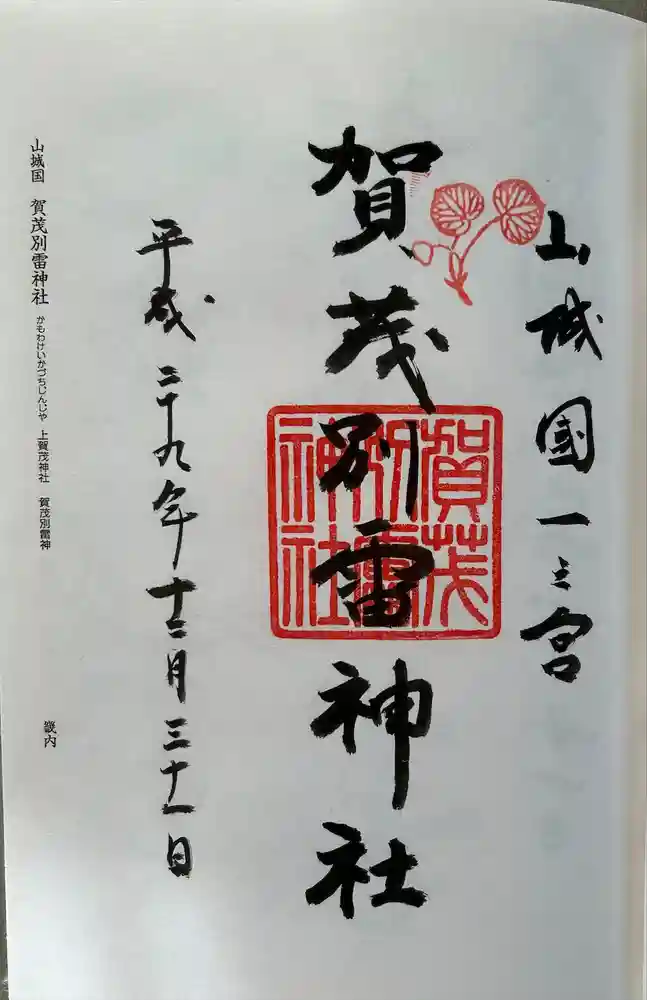 山城国一之宮
賀茂別雷神社
賀茂別雷神社
平成二十九年十二月三十一日
山城国 賀茂別雷神社 かもわけいかづちじんじゃ 上賀茂神社 賀茂別雷神 畿内